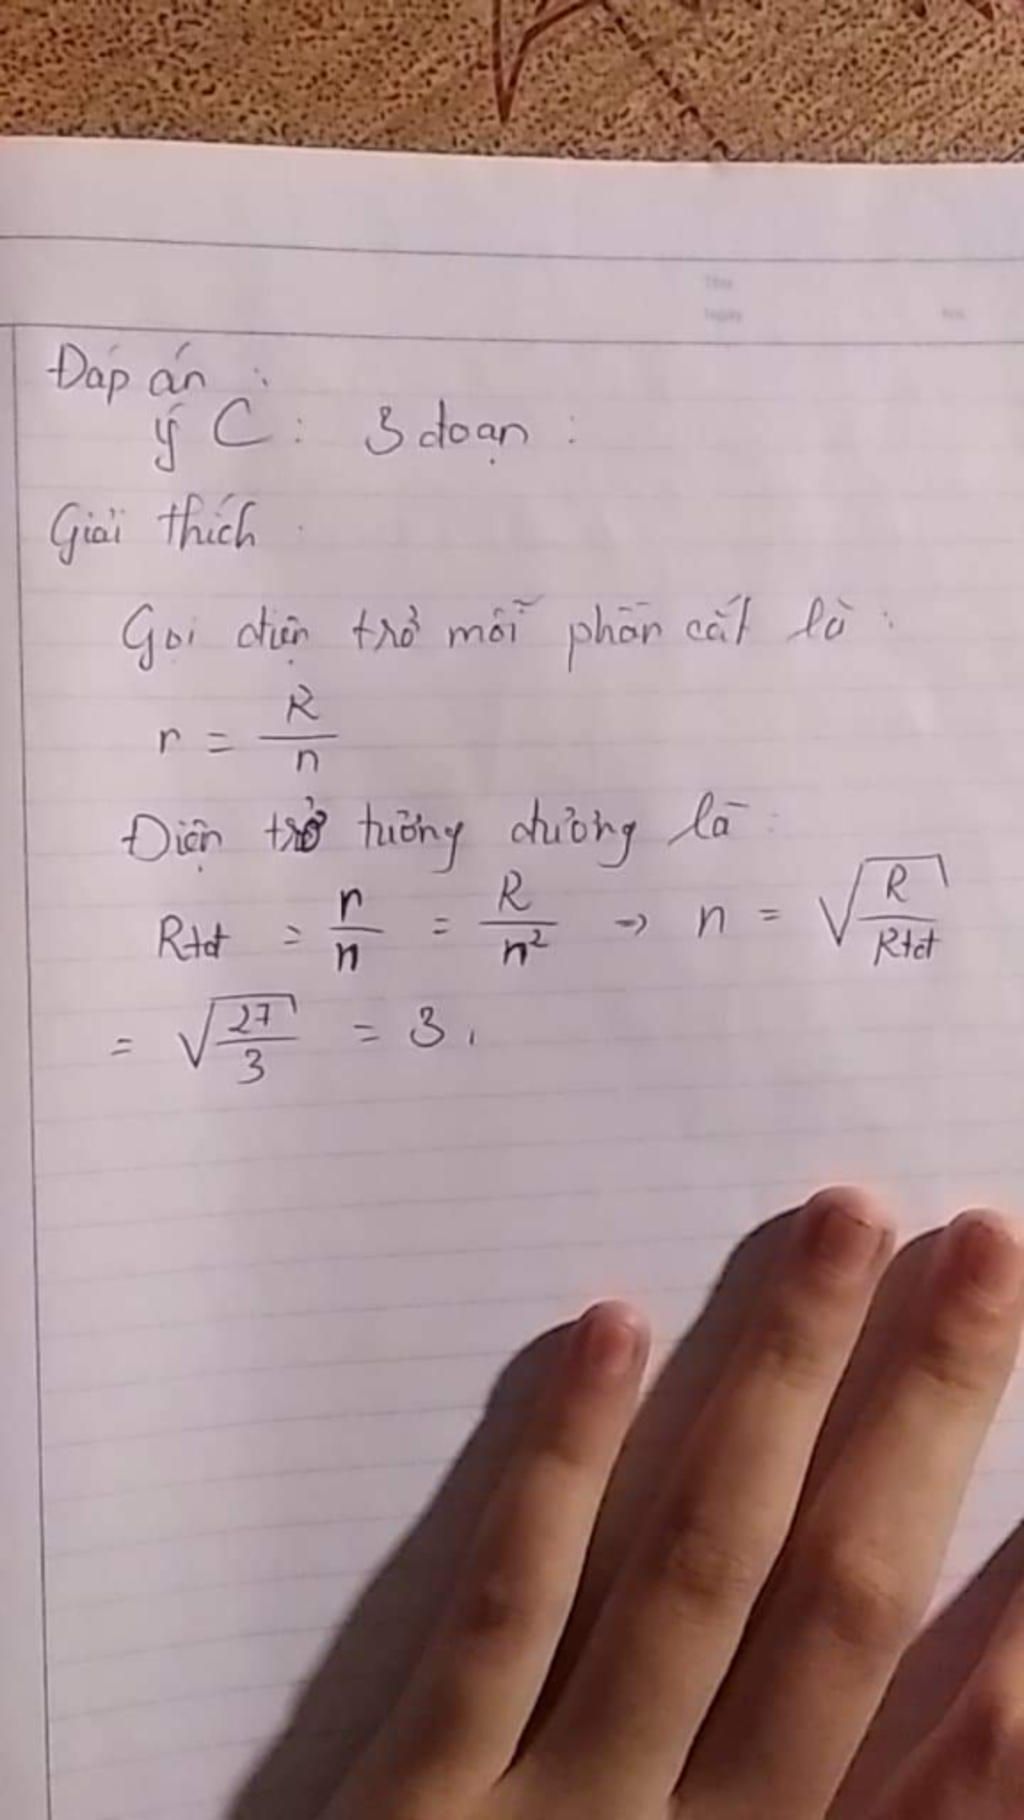 Đáp án :
ý C : 3 đoạn :
Giải thích :
Gọi điện trở mỗi phần cắt là :
r = R/n
Điện trở tương đương là :
Rtđ = r/n = R/n² → n = √(R/Rtđ)
= √(27/3) = 3.